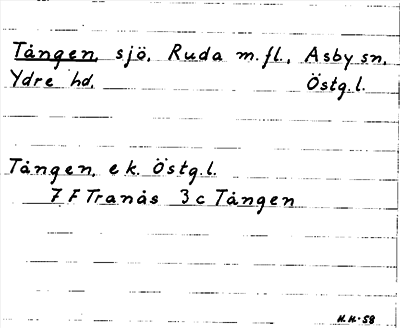 Tången, sjö, Ruda m.fl., Asby sn,
Ydre hd, Östg.l.
Tången, ek. Östg.l.
7 F Tranås 3c Tången
H.H.58